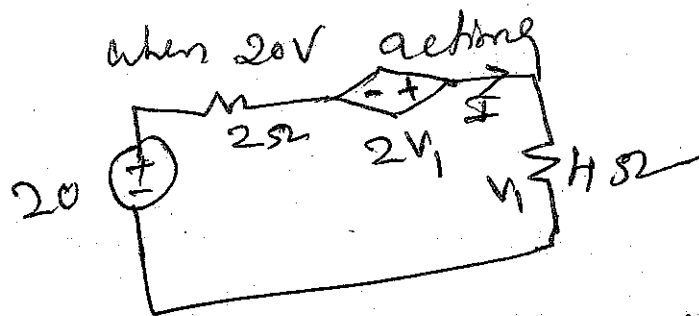 when 20V acting
- +
I
2Ω
2V₁
+
-
20
V₁
4Ω